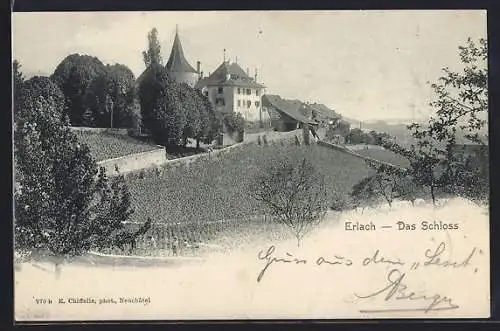 Erlach — Das Schloss
Gruss aus dem „Leset"
Berg
E. Chiffelle, phot., Neuchâtel